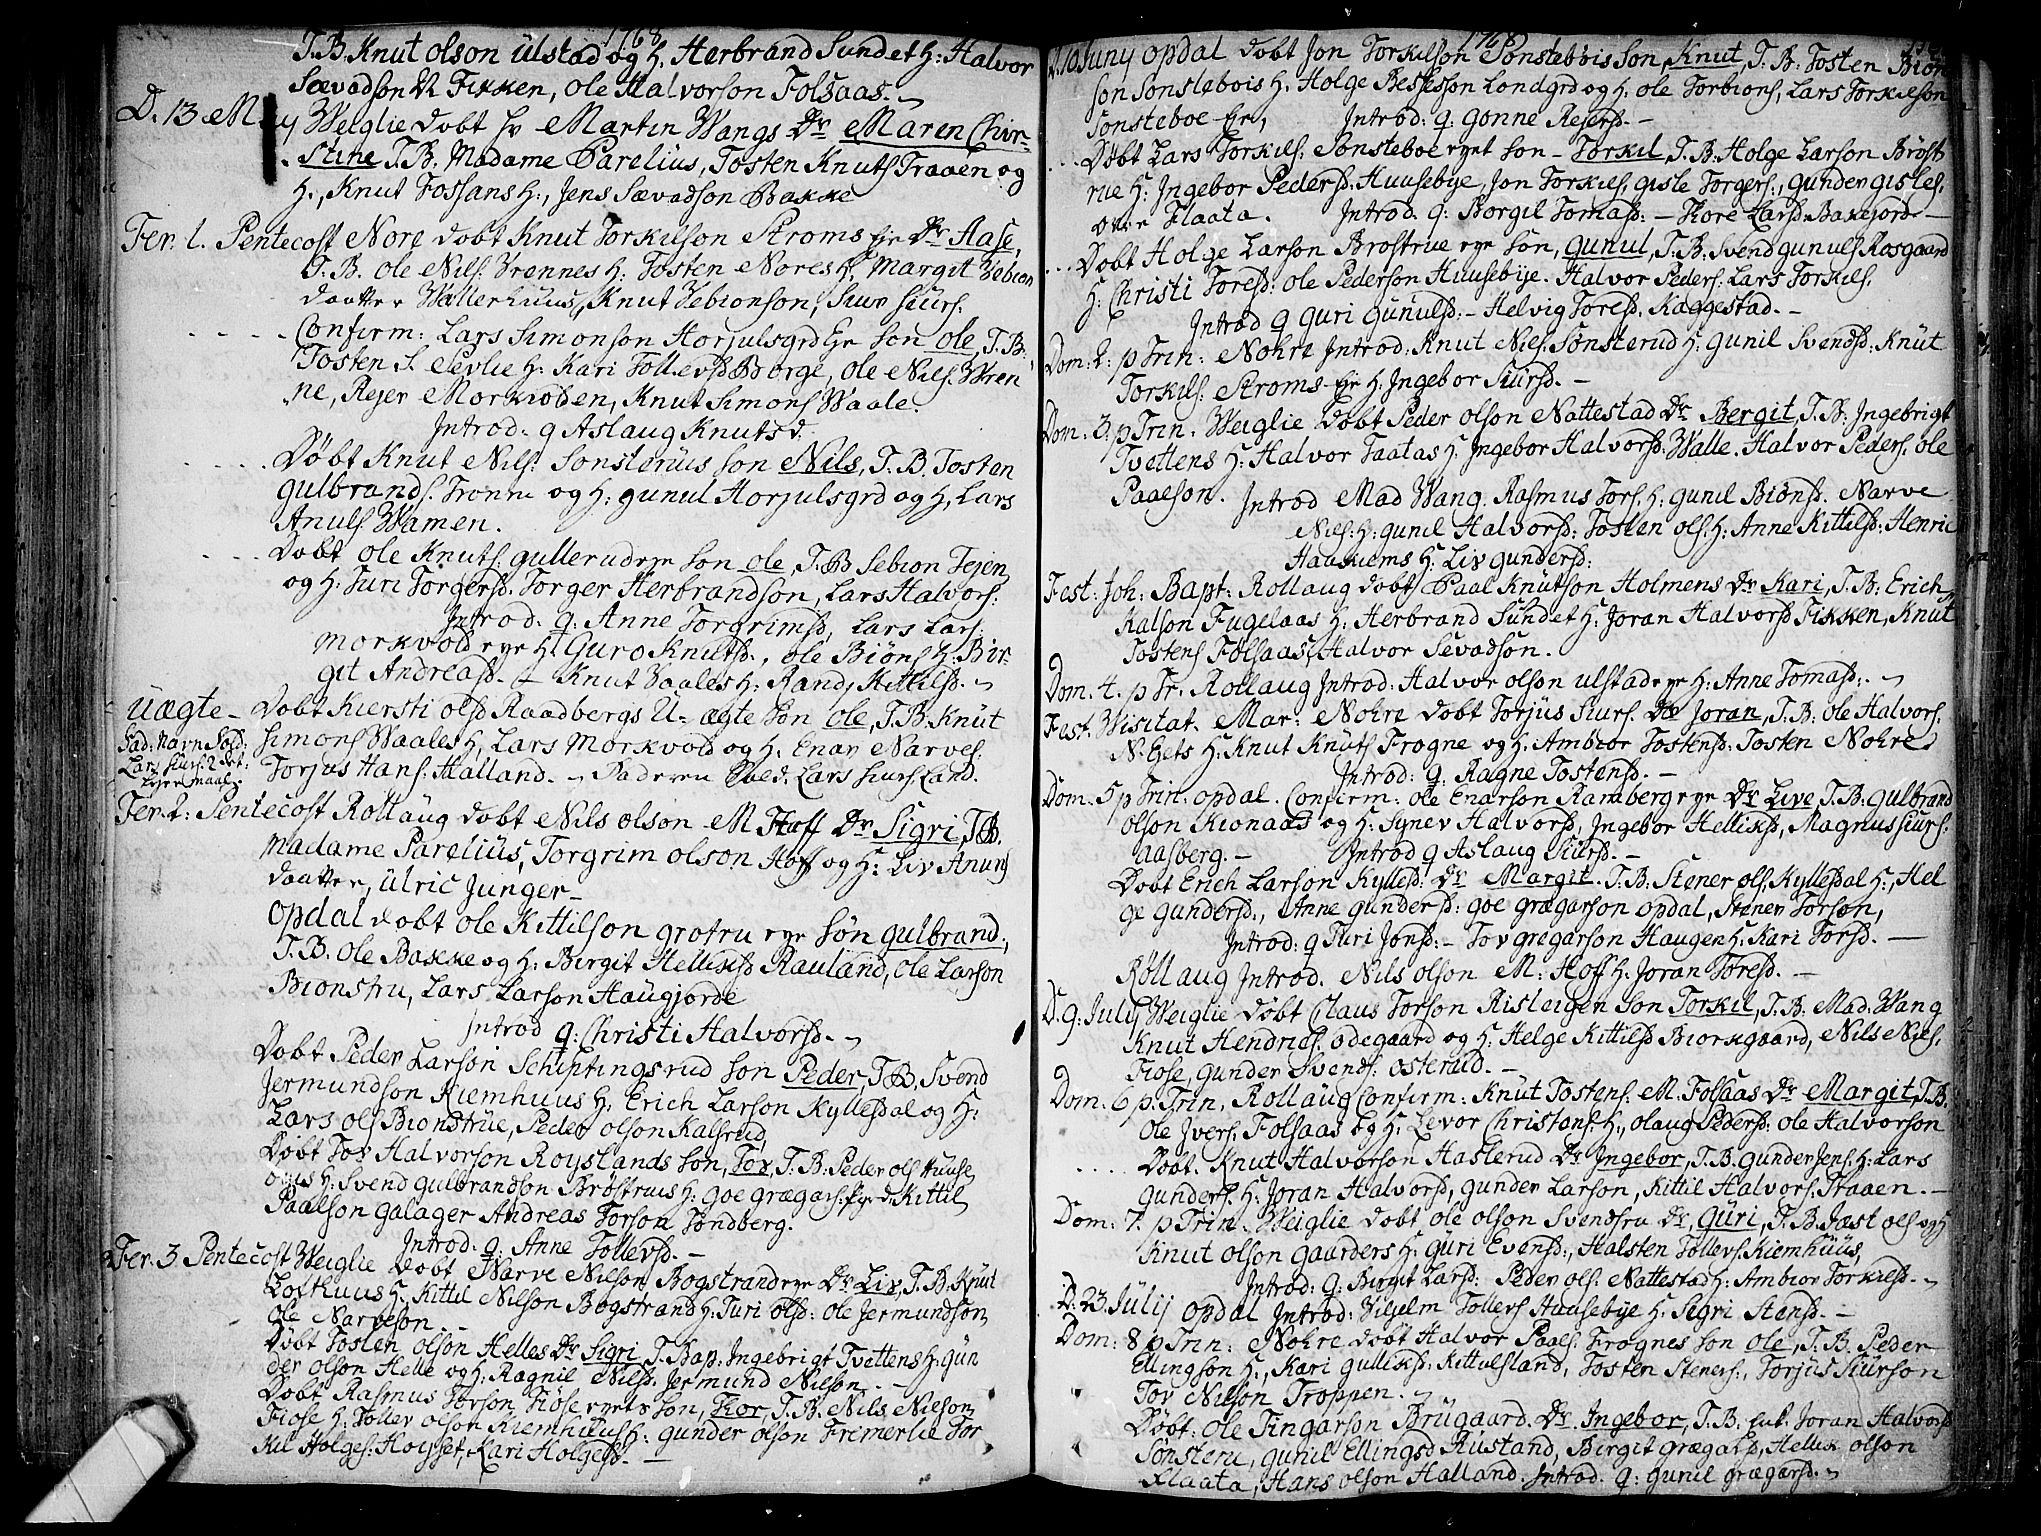 1768
T. B. Knut olson ulstad og H. Herbrand Sundet H: Halvor
Sævadson N Fikken, ole Halvorson Folsaas.
D. 13 May Weiglie dobt Hr Martin Wangs Dr Maren Chir-
stine T. B. Madame Parelius, Tosten Knuts Traaen og
H., Knut Fossans H., Jens Sævadson Bakke
Fer. 1. Pentecost Nore dobt Knut Torkilson Stroms eje Dr Aase,
T. B. ole Nils: Vrennes H: Tosten Nores H, Margit Vebion
daatter Wallerhuus, Knut Vebionson, Siur Siurs.
Confirm: Lars Simonson Horjulsgrd Eje son ole, T. B:
Tosten S. Sevlie H: Kari Tollevsd Borge, ole Nils. Wren
ne, Rejer Morkvolden, Knut Simons Waale.
Introd. q Aslaug Knutsd.
Dobt Knut Nils: Sonsteruus son Nils, T. B. Tosten
Gulbrands. Tronne og H: gunul Horjulsgrd og H, Lars
Anuls Wamen.
Dobt ole Knuts. gullerudeye son ole, T. B Sebion Tejen
og H: Turi Torgersd. Torger Herbrandson, Lars Halvors:
Introd. q: Anne Torgrimsd, Lars Lars:
morkvold eye H: Guro Knutsd., ole Biøns H: Bir-
git Andreasd. - Knut Vaales H: Randi Kittilsd.
Uægte - Dobt Kiersti olsd Raadbergs U-ægte son ole, T. B. Knut
Simons Waales H, Lars Morkvold og H: Enar Narves.
Torjus Hans: Halland. - Faderen Sold. Lars Siurs Land.
Fad: Navn Sold:
Lars Siurs: 2 det:
Lejermaal.
Fer. 2: Pentecost Rollaug dobt Nils olson M Hoff Dr Sigri, T. B.
Madame Parelius, Torgrim olson Hoff og H: Liv Anuns
daatter, Ulric Junger -
Opdal dobt ole Kittilson grotru eye son gulbrand,
T. B. ole Bakke og H: Birgit Helliksd Rauland, ole Larson
Bionstru, Lars Larson Haugjorde
Introd q: Christi Halvorsd.
Dobt Peder Larson Schiftingsrud son Peder, T. B. Svend
Jermundson Kiemhuus H: Erich Larson Kyllesdal og H:
Lars ols Bionstrue, Peder olson Kalsrud,
Dobt Tov Halvorson Roystands son, Tov, T. B. Peder ols Huuse
byes H: Svend gulbrandson Brostrues H: goe grægars: Kittil
Paalson galager Andreas Torson Tondberg.
Introd. q: Anne Tollevsd.
Fer. 3 Pentecost Weiglie dobt Narve Nilson Bogstrand eye Dr Liv, T. B. Knut
Lofthuus H: Kittil Nilson Bogstrand H: Turi olsd: ole Jermundson
ole Narveson. -
Dobt Tosten olson Helles Dr Sigri T. Bap: Ingebrigt Tvettens H: gun
der olson Helle og H: Ragnil Nilsd. Jermund Nilson. -
Dobt Rasmus Torson Fiose eyets son, Thor, T. B. Nils Nilson
Fiose H: Tollev olson Kiemhuus H: gunder olson Fremerlie Tor
kil Holges: Hoyset, Kari Holgesd. -
1768
D. 10 Juny Opdal dobt Jon Torkilson Sonstebois son, Knut, T. B. Tosten Biøn
son Sonstebois H: Holge Besseson Londgrd og H: ole Torbions, Lars Torkilson
Sonsteboe Eje, Introd: q: gonne Rejersd. -
Dobt Lars Torkils. Sonsteboe eyet son - Torkil, T. B. Holge Larson Bröst
rue H: Ingebor Pedersd. Huusebye, Jon Torkils, gisle Torgers:, gunder gisles.
ovre Flaata. Introd. q: Borgil Tomasd: - Tore Larsd. Bakejord -
Dobt Holge Larson Brostrue eye son, gunul, T. B. Svend gunuls Rosgaard
H: Christi Toresd: ole Pederson Huusebye. Halvor Peders: Lars Torkils.
Introd q Guri Gunulsd: - Helvig Toresd. Kaggestad. -
Dom: 2: p Trin: Nohre Introd: Knut Nils. Sonsterud H: gunil Svendsd: Knut
Torkils: Stroms Eje H: Ingebor Siursd. -
Dom. 3. p Trin. Weiglie Dobt Peder olson Nattestad Dr Bergit, T. B: Ingebrigt
Tvettens H: Halvor Taatas H: Ingebor Halvorsd: Walle. Halvor Peders. ole
Paalson. Introd Mad Wang. Rasmus Tors. H: gunil Biønsd. Narve
Nils: H: gunil Halvorsd: Tosten ols: H: Anne Kittilsd: Henric
Haasiems H: Liv gundersd:
Fest: Joh: Bapt: Rollaug dobt Paal Knutson Holmens Dr Kari, T. B: Erich
Kalson Fugelaas H: Herbrand Sundet H: Joran Halvorsd Fikken, Knut
Tostens Folsaas, Halvor Sevadson.
Dom. 4. p Tr: Rollaug Introd: Halvor olson ulstad eye H: Anne Tomasd:.
Fest. Wisitat. Mar: Nohre dobt Torjus Siurs. Dr Joran, T. B: ole Halvors.
N. Gets H: Knut Knuts Frogne og H: Ambior Tostensd: Tosten Nohre
Introd: q: Ragne Tostensd. -
Dom: 5 p Trin: opdal. Confirm: ole Enarson Ramberg eye Dr Live, T. B. gulbrand
olson Kionaas og H: Synev Halvorsd, Ingebor Helliksd, Magnus Siurs.
aasberg. - Introd q Aslaug Siursd. -
Dobt Erich Larson Kyllesd: Dr Margit. T. B: Stener ols. Kyllesdal H:, Hel
ge gundersd:, Anne gundersd: goe grægarson opdal, Stener Torson,
Introd: q Turi Jonsd: - Tov gregarson Haugen H: Kari Torsd. -
Rollaug Introd. Nils olson M: Hoff H: Joran Toresd. -
D. 9. July Weiglie Dobt Claus Torson Risteigen son Torkil, T. B: Mad. Wang
Knut Hendrics. odegaard og H: Helge Kittilsd Biorkgaard, Nils Nils.
Fiose, gunder Svends: osterud. -
Dom. 6 p. Trin. Rollaug Confirm: Knut Tostens. M. Folsaas Dr Margit, T. B.
ole Ivers. Folsaas og H: Levor Christens: H:, olaug Pedersd: ole Halvorson
Dobt. Knut Halvorson Haslerud Dr Ingebor, T. B. gunder Jens. H: Lars
gunders. H: Joran Halvorsd, gunder Larson, Kittil Halvors. Traaen. -
Dom: 7. p Trin. Weiglie dobt ole olson Svendsru Dr, Guri, T. B. Jøst ols og H
Knut olson gaarders H: Guri Evensd:, Halsten Tollevs Kiemhuus,
Introd: q: Birgit Larsd: Peder ols. Nattestad H: Ambior Torkilsd. -
D: 23 Julij Opdal Introd: Vilhelm Tollevs Huusebye H: Sigri Stensd. -
Dom: 8 p Trin: Nohre dobt Halvor Paals. Frognes son ole, T. B. Peder
Ellingson H:, Kari gulliksd: Kittulsland, Tosten Steners:, Torjus Siurson
Tov Nilson Troppen. -
Dobt: ole Tingarson Brugaard, Dr. Ingebor, T. B. Joran Halvorsd
Sonsteru, gunil Ellingsd Rustand, Birgit grægarsd, Hellik olson
Flaata, Hans olson Halland. Introd. q: gunil grægarsd.